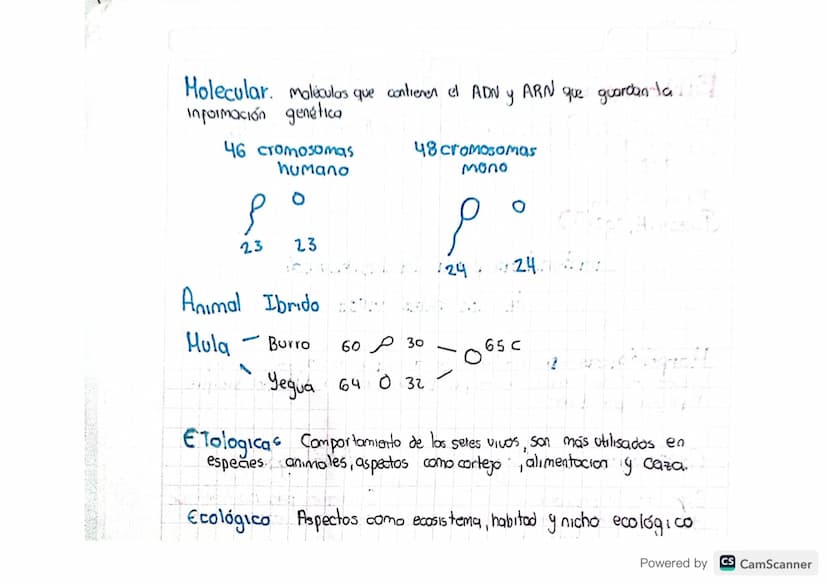 Molecular. moléculas que contienen el ADN y ARN que guardan la
información genética
46 cromosomas
humano
48 cromosomas
mono
23 23
24 24
Animal Ibrido
Mula - Burro 60 30
65 C
Yegua 64 32
Etologicas Comportamiento de los seres vivos, son más utilisados en
especies animales, aspectos como cortejo, alimentacion y caza.
Ecológico Aspectos como ecosistema, habitad y nicho ecológico
Powered by CS CamScanner